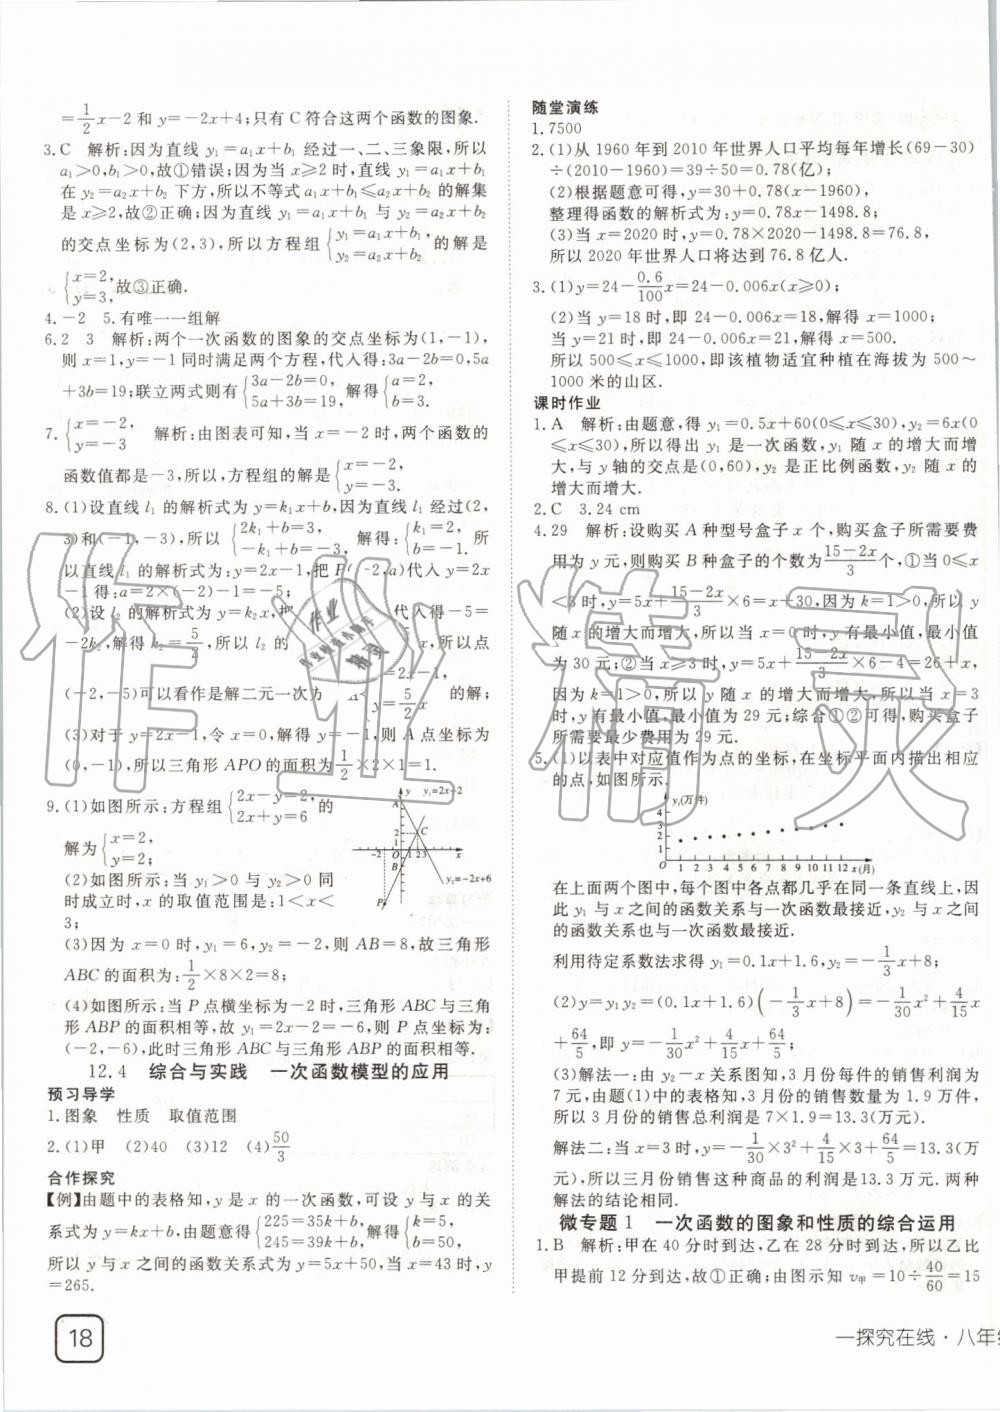 =1/2x-2和y=-2x+4;只有C符合这两个函数的图象.
3.C 解析:因为直线 y₁=a₁x+b₁ 经过一、二、三象限,所以
a₁>0,b₁>0,故①错误;因为当 x≥2 时,直线 y₁=a₁x+b₁
在 y₂=a₂x+b₂ 下方,所以不等式 a₁x+b₁≤a₂x+b₂ 的解集
是 x≥2,故②正确;因为直线 y₁=a₁x+b₁ 与 y₂=a₂x+b₂
的交点坐标为(2,3),所以方程组{y₁=a₁x+b₁, y₂=a₂x+b₂ 的解是
{x=2, y=3,故③正确.
4.-2 5.有唯一一组解
6.2 3 解析:两个一次函数的图象的交点坐标为(1,-1),
则 x=1,y=-1 同时满足两个方程,代入得:3a-2b=0,5a
+3b=19;联立两式则有{3a-2b=0, 5a+3b=19,解得{a=2, b=3.
7.{x=-2, y=-3 解析:由图表可知,当 x=-2 时,两个函数的
函数值都是-3,所以,方程组的解是{x=-2, y=-3.
8.(1)设直线 l₁ 的解析式为 y=k₁x+b,因为直线 l₁ 经过(2,
3)和(-1,-3),所以{2k₁+b=3, -k₁+b=-3,解得:{k₁=2, b=-1.所
以直线 l₁ 的解析式为:y=2x-1,把 P(-2,a)代入 y=2x
-1 得:a=2×(-2)-1=-5;
(2)设 l₂ 的解析式为 y=k₂x,把 代入得-5=
-2k₂,解得 k₂=5/2,所以 l₂ 的 =2x-1, y=5/2x 所以点
(-2,-5)可以看作是解二元一次方 的解;
(3)对于 y=2x-1,令 x=0,解得 y=-1,则 A 点坐标为
(0,-1),所以三角形 APO 的面积为1/2×2×1=1.
9.(1)如图所示:方程组{2x-y=2, 2x+y=6 的
解为{x=2, y=2;
(2)如图所示:当 y₁>0 与 y₂>0 同
时成立时,x 的取值范围是:1<x<
3;
y y₁=2x-2
A
C
-2 O 1 2 3 x
B
P
y₁=-2x+6
(3)因为 x=0 时,y₁=6,y₂=-2,则 AB=8,故三角形
ABC 的面积为:1/2×8×2=8;
(4)如图所示:当 P 点横坐标为-2 时,三角形 ABC 与三角
形 ABP 的面积相等,故 y₁=2x-2=-6,则 P 点坐标为:
(-2,-6),此时三角形 ABC 与三角形 ABP 的面积相等.
12.4 综合与实践 一次函数模型的应用
预习导学
1.图象 性质 取值范围
2.(1)甲 (2)40 (3)12 (4)50/3
合作探究
【例】由题中的表格知,y 是 x 的一次函数,可设 y 与 x 的关
系式为 y=kx+b,由题意得{225=35k+b, 245=39k+b,解得{k=5, b=50,
所以 y 与 x 之间的函数关系式为 y=5x+50,当 x=43 时,y
=265.
18
随堂演练
1.7500
2.(1)从 1960 年到 2010 年世界人口平均每年增长(69-30)
÷(2010-1960)=39÷50=0.78(亿);
(2)根据题意可得,y=30+0.78(x-1960),
整理得函数的解析式为:y=0.78x-1498.8;
(3)当 x=2020 时,y=0.78×2020-1498.8=76.8,
所以 2020 年世界人口将达到 76.8 亿人.
3.(1)y=24-0.6/100x=24-0.006x(x≥0);
(2)当 y=18 时,即 24-0.006x=18,解得 x=1000;
当 y=21 时,即 24-0.006x=21,解得 x=500.
所以 500≤x≤1000,即该植物适宜种植在海拔为 500~
1000 米的山区.
课时作业
1.A 解析:由题意,得 y₁=0.5x+60(0≤x≤30),y₂=6x(0
≤x≤30),所以得出 y₁ 是一次函数,y₁ 随 x 的增大而增
大,与 y 轴的交点是(0,60),y₂ 是正比例函数,y₂ 随 x 的
增大而增大.
2.C 3.24 cm
4.29 解析:设购买 A 种型号盒子 x 个,购买盒子所需要费
用为 y 元,则购买 B 种盒子的个数为15-2x/3个,①当 0≤x
<3 时,y=5x+15-2x/3×6=x+30,因为 k=1>0,所以 y
随 x 的增大而增大,所以当 x=0 时,y 有最小值,最小值
为 30 元;②当 x≥3 时,y=5x+15-2x/3×6-4=26+x,
因为 k=1>0,所以 y 随 x 的增大而增大,所以当 x=3
时,y 有最小值,最小值为 29 元;综合①②可得,购买盒子
所需要最少费用为 29 元.
5.(1)以表中对应值作为点的坐标,在坐标平面内描出相应
的点,如图所示.
y₁(万件)
4
3
2
1
O 1 2 3 4 5 6 7 8 9 10 11 12 x(月)
在上面两个图中,每个图中各点都几乎在同一条直线上,因
此 y₁ 与 x 之间的函数关系与一次函数最接近,y₂ 与 x 之间
的函数关系也与一次函数最接近.
利用待定系数法求得 y₁=0.1x+1.6,y₂=-1/3x+8;
(2)y=y₁y₂=(0.1x+1.6)(-1/3x+8)=-1/30x²+4/15x
+64/5,即 y=-1/30x²+4/15x+64/5;
(3)解法一:由 y₂-x 关系图知,3 月份每件的销售利润为
7 元,由题(1)中的表格知,3 月份的销售数量为 1.9 万件,
所以 3 月份的销售总利润是 7×1.9=13.3(万元).
解法二:当 x=3 时,y=-1/30×3²+4/15×3+64/5=13.3(万
元),所以三月份销售这种商品的利润是 13.3 万元. 两种
解法的结论相同.
微专题 1 一次函数的图象和性质的综合运用
1.B 解析:甲在 40 分时到达,乙在 28 分时到达,所以乙比
甲提前 12 分到达,故①正确;由图示知 v甲=10÷40/60=15
一探究在线·八年级
作业精灵